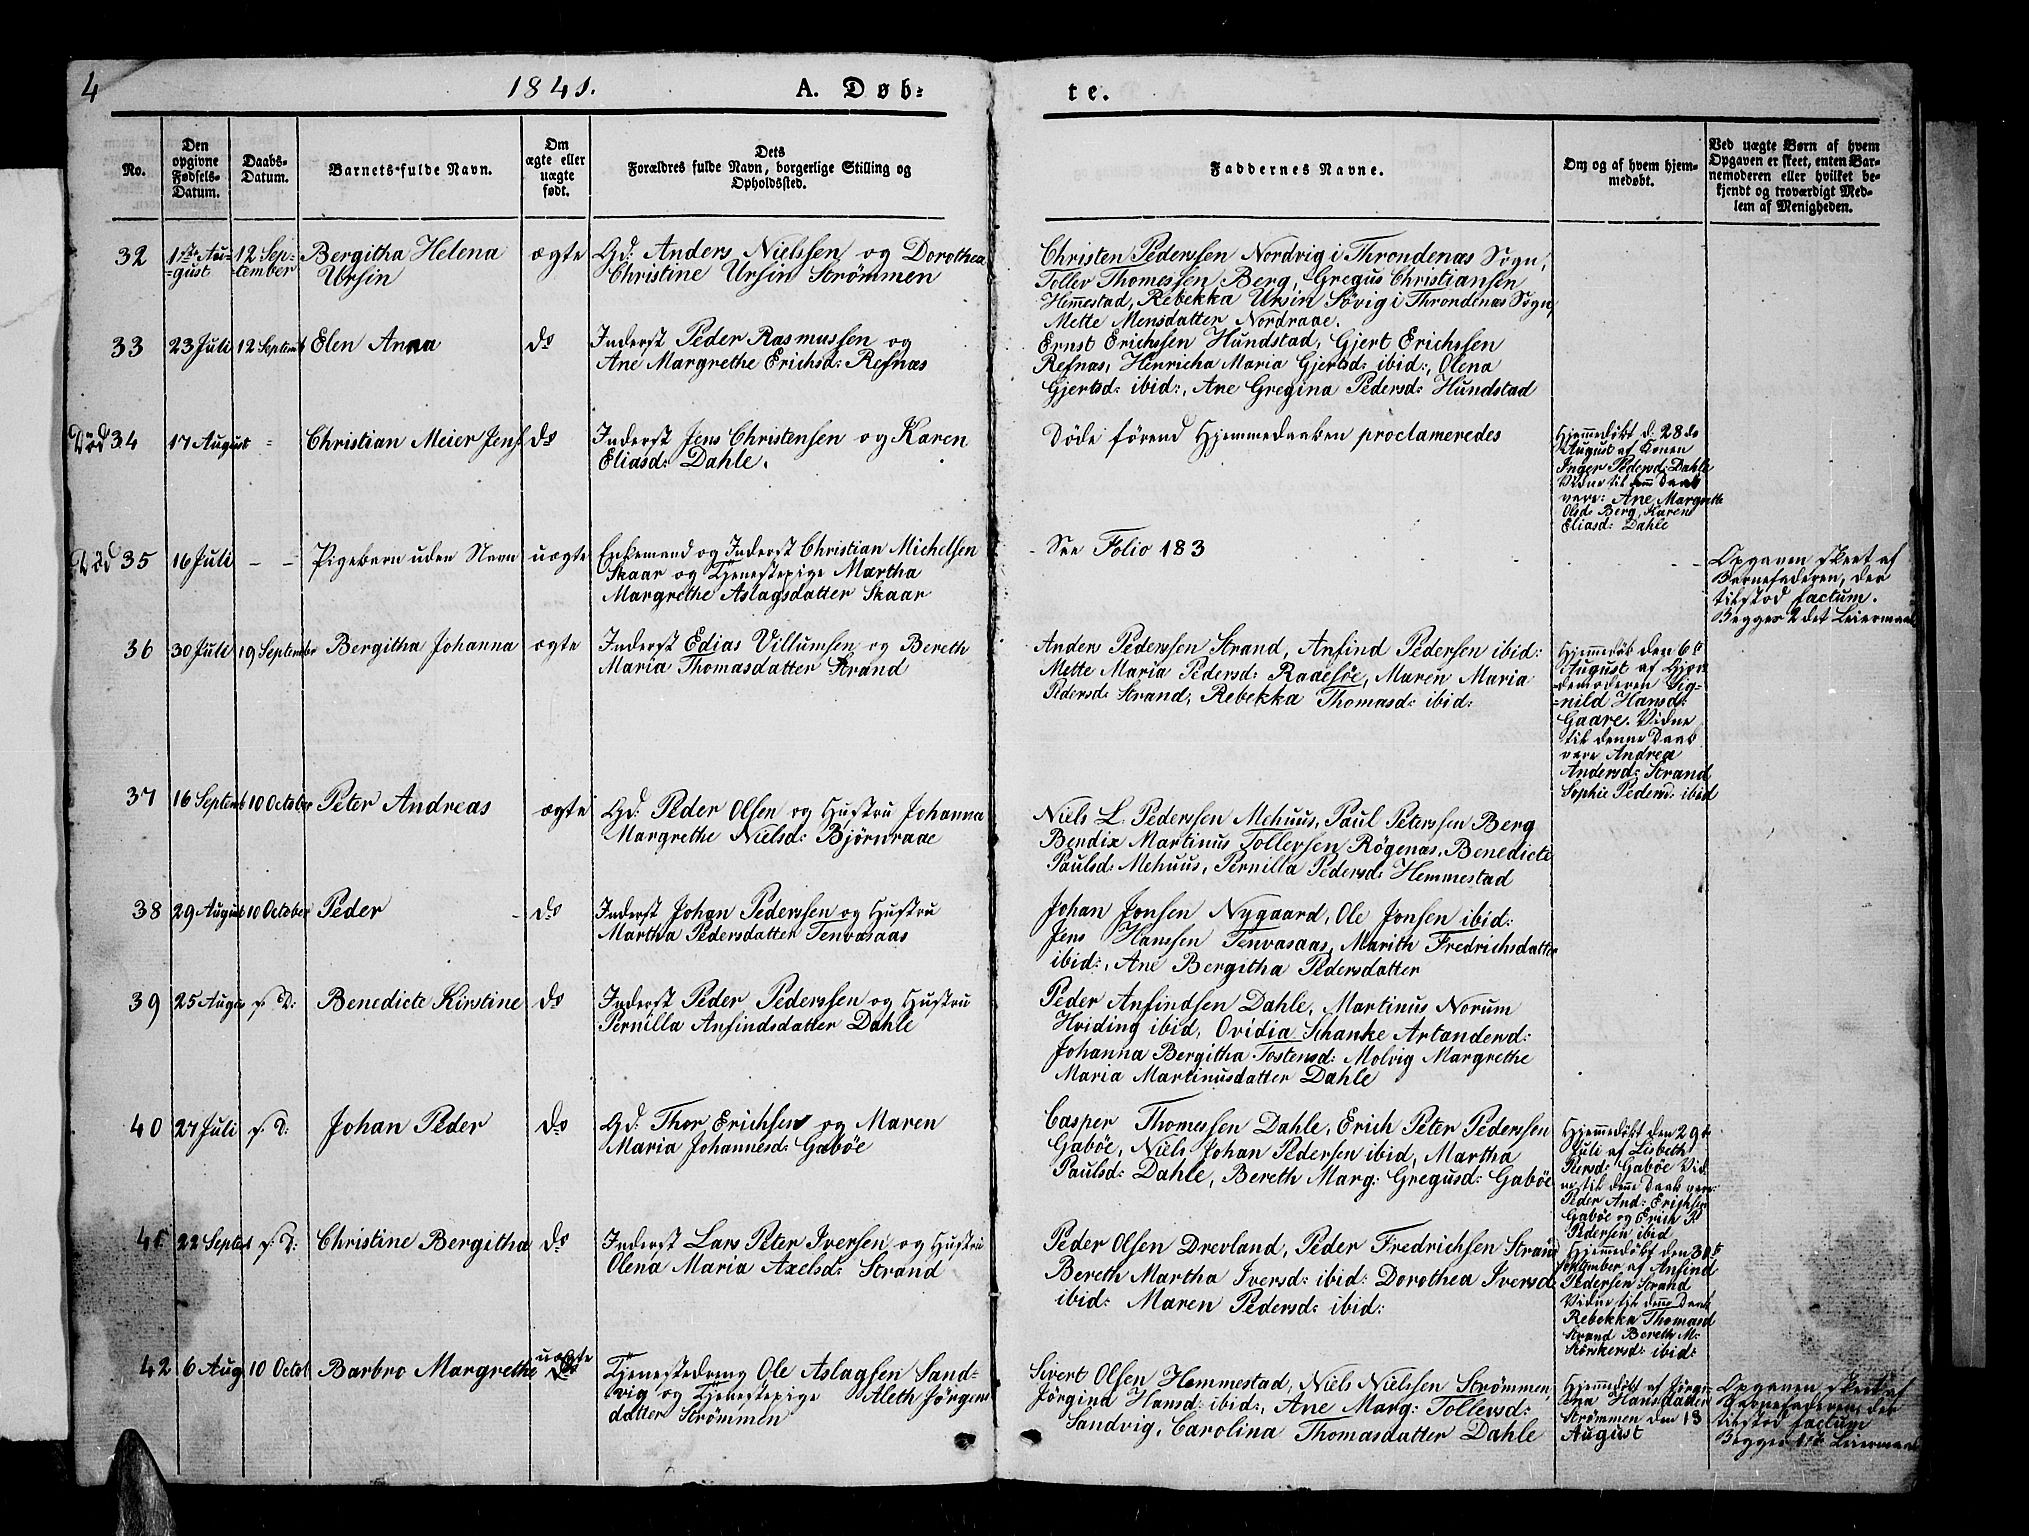 4
1841.
A. Døb-
te.
No.
Den
opgivne
Fødsels-
Datum.
Daabs-
Datum.
Barnets fulde Navn.
Om
ægte eller
uægte
født.
Dets
Forældres fulde Navn, borgerlige Stilling og
Opholdssted.
Faddernes Navne.
Om og af hvem hjem-
medøbt.
Ved uægte Børn af hvem
Opgaven er skeet, enten Bar-
nemoderen eller hvilket be-
kjendt og troværdigt Med-
lem af Menigheden.
32
1ste Au-
gust
12 Sep-
tember
Bergitha Helena
Ursin
ægte
Gd. Anders Nielssen og Dorothea
Christine Ursin Strømmen
Christen Pederssen Nordvig i Throndenas Sogn,
Toller Thomessen Berg, Gregus Christiansen
Hemestad, Rebekka Ursin Sövig i Throndenas Sogn,
Mette Mensdatter Nordraae.
33
23 Juli
12 Septemb
Elen Anna
do
Inderst Peder Rasmussen og
Ane Margrethe Erichsd: Refnas
Ernst Erichssen Hundstad, Gjert Erichssen
Refnas, Henricha Maria Gjertsd: ibid:, Olena
Gjertsd: ibid:, Ane Gregina Pedersd: Hundstad
Død 34
17 August
-
Christian Meier Jens.
do
Inderst Jens Christensen og Karen
Eliasd: Dahle.
Døde förend Hjemmedaaben proclameredes
Hjemmedøbt d. 28de
August af Konen
Inger Pedersd: Dahle
Vidne til den Daab
vare: Ane Margreth
Olsd: Berg, Karen
Eliasd: Dahle
Død 35
16 Juli
- -
Pigebarn uden Navn
uægte
Enkemand og Inderst Christian Michelsen
Skaar og Tjenestepige Martha
Margrethe Aslagsdatter Skaar
- See Folio 183
- -
Opgaven skeet af
Barnefaderen, der
tilstod factum.
Begges 2det Leiermaal
36
30 Juli
19 September
Bergitha Johanna
ægte
Inderst Edias Villumsen og Bereth
Maria Thomasdatter Strand
Anders Pederssen Strand, Anfind Pedersen ibid:
Mette Maria Pedersd: Raaesöe, Maren Maria
Pedersd: Strand, Rebekka Thomasd: ibid:
Hjemmedøb den 6te
August af Gjor
demoderen Sig-
nild Hansd:
Gaare. Vidne
til denne Daab
vare Andrea
Andersd: Strand
Sophie Pedersd: ibid
37
16 Septemb
10 October
Peter Andreas
ægte
Gd: Peder Olsen og Hustru Johanna
Margrethe Nielsd: Bjørnraae
Niels L. Pederssen Mehuus, Paul Peterssen Berg
Bendix Martinus Tollersen Røgenas, Benedicte
Paulsd: Mehuus, Pernilla Pedersd: Hemmestad
38
29 August
10 October
Peder
-
do
Inderst Johan Pederssen og Hustru
Martha Pedersdatter Tenvasaas
Johan Jonsen Nygaard, Ole Jonsen ibid:
Jens Hanssen Tenvasaas, Marith Fredrichsdatter
ibid:, Ane Bergitha Pedersdatter
39
25 Augu
s. D:
Benedicte Kirstine
do
Inderst Peder Pederssen og Hustru
Pernilla Anfindsdatter Dahle
Peder Anfindsen Dahle, Martinus Norum
Hviding ibid, Ovidia Schanke Artandersd:
Johanna Bergitha Tostensd: Molvig Margrethe
Maria Martinusdatter Dahle
40
27 Juli
s. D:
Johan Peder
do
Gd: Thor Erichsen og Maren
Maria Johannesd: Gabøe
Casper Thomessen Dahle, Erich Peter Pederssen
Gabøe, Niels Johan Pedersen ibid, Martha
Paulsd: Dahle, Bereth Marg: Gregusd: Gabøe
Hjemmedøbt den 29de
Juli af Lisbeth
Piersd: Gabøe Vid
ne til denne Daab vare:
Peder And: Erichsen
Gabøe og Erich P.
Pedersen ibid
41
22 Septbr
s. D:
Christine Bergitha
do
Inderst Lars Peter Iversen og Hustru
Olena Maria Axelsd: Strand
Peder Olsen Drevland, Peder Fredrichsen Strand
Bereth Martha Iversd: ibid: Dorothea Iversd:
ibid: Maren Pedersd: ibid:
Hjemmedøbt den 30te
September af Anfind
Pedersen Strand
Vidne til denne Daab
Rebekka Thomasd
Strand Bereth M.
Størkersd: ibid:
42
6 Aug
10 Octob
Barbro Margrethe
uægte
do
Tjenestedreng Ole Aslagsen Sand-
vig og Tjenestepige Aleth Jørgens
datter Strømmen
Sivert Olsen Hemmestad, Niels Nielssen Strømmen,
Jørgina Hansd: ibid:, Ane Marg: Tollersd:
Sandvig, Carolina Thomasdatter Dahle
Hjemmedøbt af Jørgi-
na Hansdatter
Strømmen den 13
August
Opgaven skeet af
Barnefaderen, der
tilstod factum
Begges 1ste Leiermaal